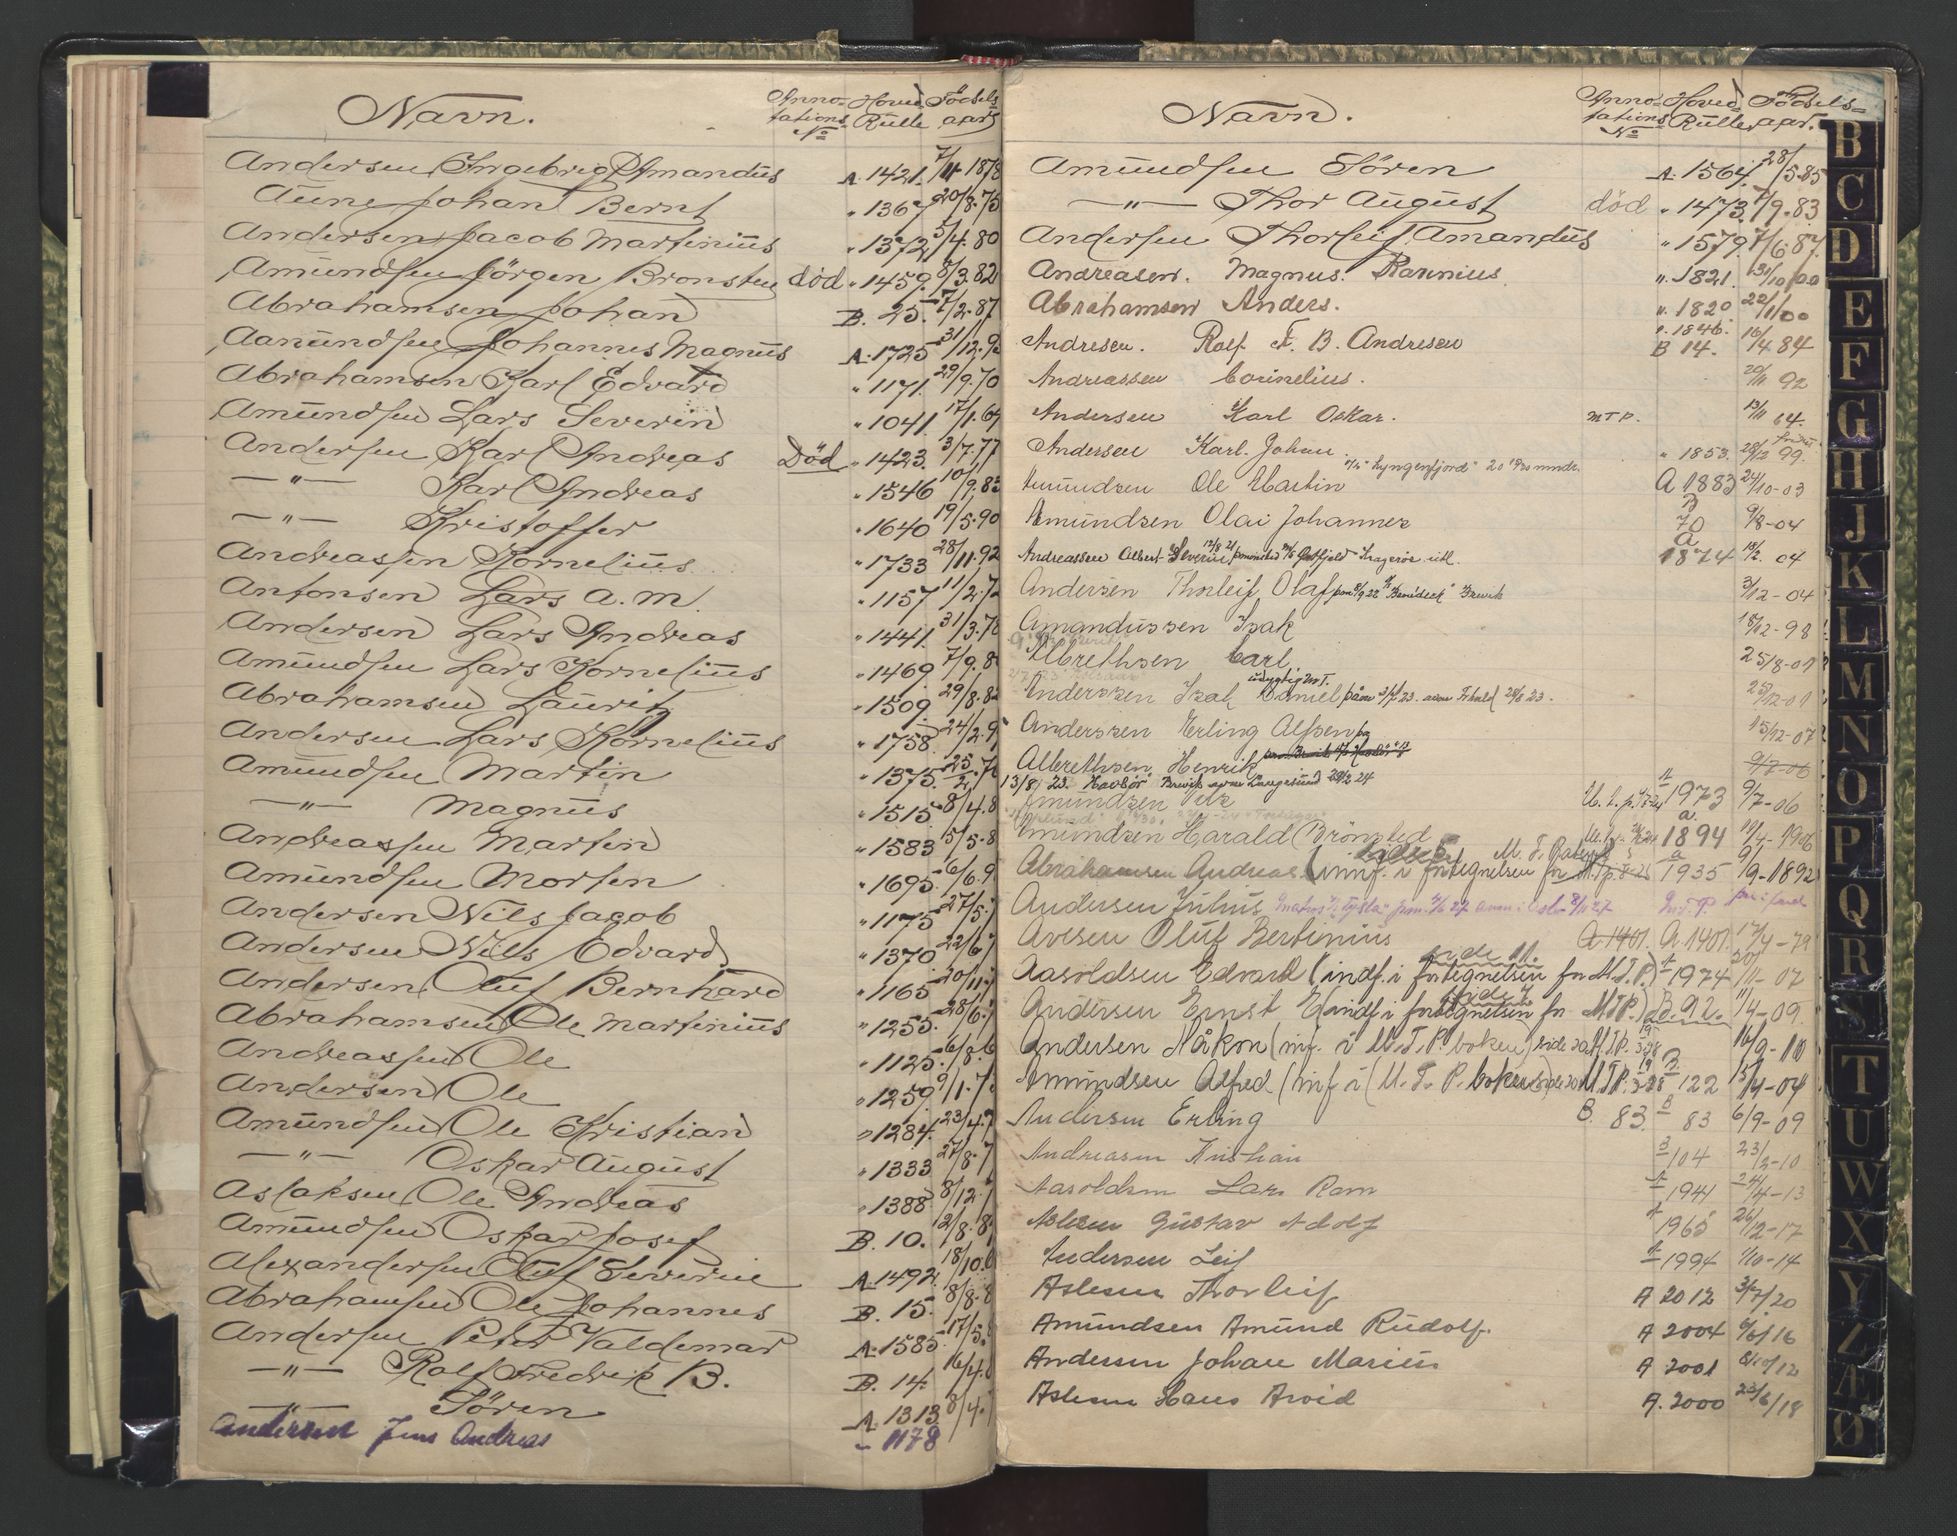 Navn. Anno- Hoved Fødsels-
tations Rulle aar
No
Andersen Ingebrigt Amandus A. 1421. 7/11 1878
Aune Johan Bernt " 1367 20/8.75
Andersen Jacob Martinius " 1372 5/4.80
Amundsen Jörgen Bronsten död " 1459. 8/3.82
Abrahamsen Johan B. 25. 7/2.87
Aamundsen Johannes Magnus A. 1725 31/12.9
Abrahamsen Karl Edvard " 1171. 29/9.70
Amundsen Lars Severin " 1041. 17/1.67
Andersen Karl Andreas Död " 1423. 3/7.77
—"— Karl Andreas " 1546 10/9.83
—"— Kristoffer " 1640 19/5.90
Andreassen Kornelius " 1733 28/11.92
Antonsen Lars A. M. " 1157 11/2.7
Andersen Lars Andreas " 1441. 31/3.78
Amundsen Lars Kornelius " 1469 7/9.8
Abrahamsen Laurits " 1509. 29/8.82
Andersen Lars Kornelius " 1758. 24/2.9
Amundsen Martin " 1375. 25/2.7
—"— Magnus " 1515 8/4.8
Andreassen Martin " 1583 5/5.8
Amundsen Morten " 1695 6/6.9
Andersen Nils Jacob " 1175 27/5.
Andersen Nils Edvard " 1370 22/6.
Andersen Oluf Bernhard " 1165 20/11.
Abrahamsen Ole Martinius " 1255. 28/6.
Andreassen Ole " 1125. 6/8.6
Andersen Ole " 1259 9/1.7
Amundsen Ole Kristian " 1284. 23/4.7
—"— Oskar August " 1333 27/8.7
Aslaksen Ole Andreas " 1388 8/12.
Amundsen Oskar Josef B. 10. 12/8.8
Alexandersen Oluf Severin A. 1492. 18/10.
Abrahamsen Ole Johannes B. 15. 8/8.8
Andersen Peter Valdemar A. 1585 17/5.
—"— Rolf Fredrik B. B. 14. 16/4.8
—"— Sören A. 1313 8/4.
Andersen Jens Andreas " 1178
Navn. Anno- Hoved Fødsels-
tations Rulle aar.
No
Amundsen Sören A. 1564. 28/5.85
—"— Thor August död " 1473. 7/9.83
Andersen Thorleif Amandus " 1579. 7/6.87.
Andreasen. Magnus. Rannius " 1821. 31/10 00
Abrahamsen Anders. " 1820. 22/1 00
" 1846.
Andresen. Rolf. F. B. Andresen B 14. 16/4 84
Andreassen Cornelius. 20/11 92
Andersen Karl Oskar. MTP. 13/11 64.
Andersen Karl. Johan. " 1853. 28/12 99.
"Lyngenfjord"
Amundsen Ole Martin A 1883 24/10-03
Amundsen Olai Johannes B 70 9/8-04
Andreassen Albert Severin Kragerøe A 1874 18/2. 04
Andersen Thorleif Olaf Brevik 3/12-04
Amandussen Isak 18/12-98
Albrethsen Carl 25/8-07
Anderssen Isak Daniel 25/12-07
Anderssen Erling Alfsen 15/12-07
Albrethsen Henrik 9/7-06
13/8 23. "Havbör" Brevik Langesund 29/2 24
Amundsen A 1973 9/7-06
Amundsen Harald Brönsted a. 1894 19/4-1906
Abrahamsen Andreas (innf. i fortegnelsen for a 1935 9/9-1892
Andersen Julius
Avesen Oluf Bertinius A 1401. A. 1401. 17/4-79
side 11.
Aaroldsen Edvard (indf. i fortegnelsen for M.T.P.) A 1974 20/11-07
Andersen Ernst E (indf. i fortegnelsen for MTP.) B. 92. 11/4-09.
Andersen Håkon (inf. i M.T.P. boken) 16/9-10
Amundsen Alfred (inf i (M.T.P. boken B 122 15/4-04
Andersen Erling B. 83. B 83 6/9-09
Andreasen Kristian B 104 23/2-10
Aaroldsen Lars Ram A 1941 24/4-13
Aslesen Gustav Adolf A 1965 26/12-17
Andersen Leif A 1994 1/10-14
Aslesen Thorleif A 2012 3/7/20
Amundsen Amund Rudolf. A 2004 6/6/16
Andersen Johan Marius A 2001 8/10/12
Aslesen Hans Arvid A. 2000 23/6/18
B
C
D
E
F
G
H
J
K
L
M
N
O
P
Q
R
S
T
U
W
X
Y
Z
Æ
Ø